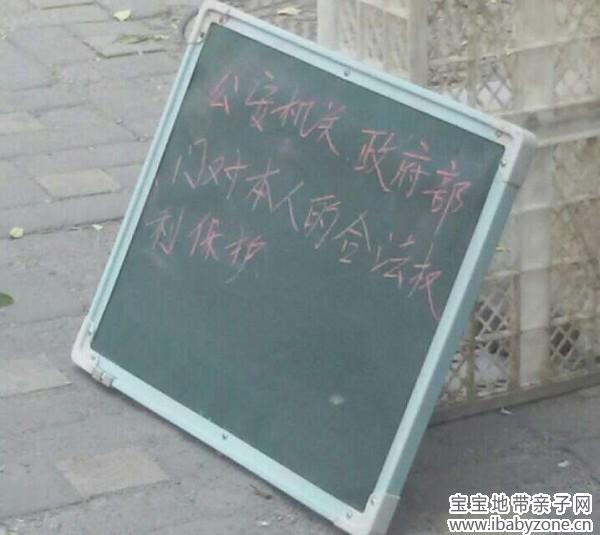 公安机关、政府部
门对本人的合法权
利保护
宝宝地带亲子网
www.ibabyzone.cn